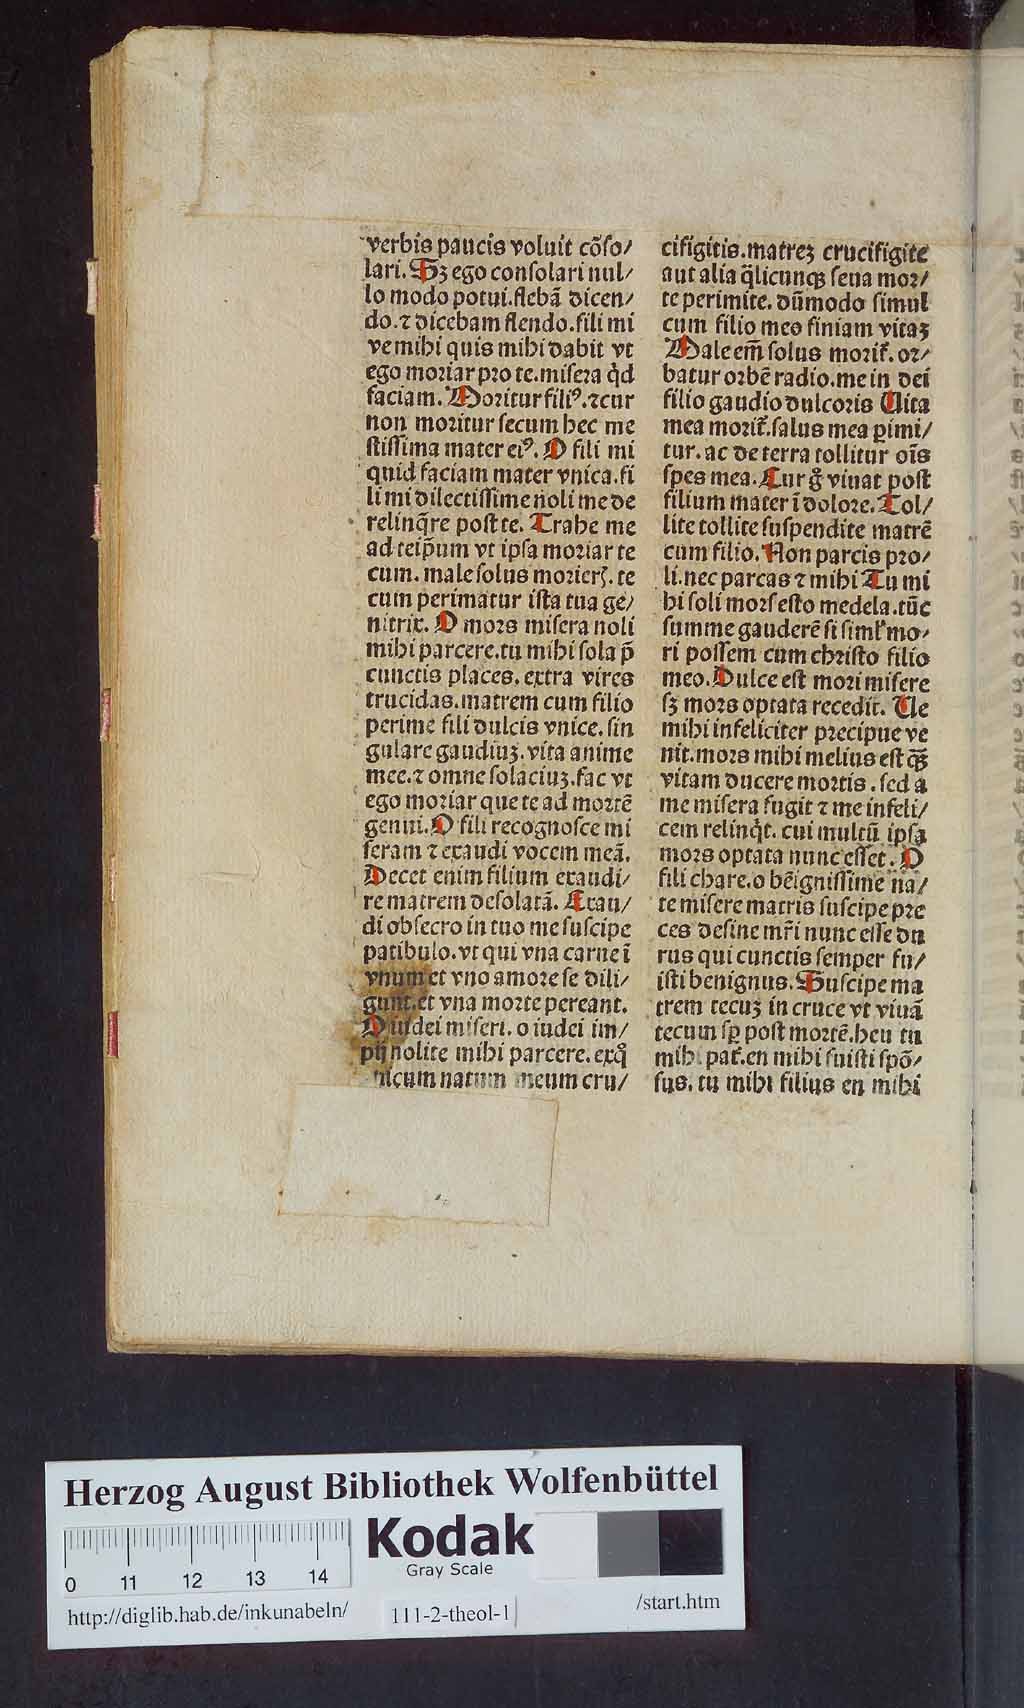 verbis paucis voluit cõſo/
lari. Sꝫ ego conſolari nul/
lo modo potui. flebã dicen/
do. ⁊ dicebam flendo. fili mi
ve mihi quis mihi dabit vt
ego moriar pro te. miſera q̇d
faciam. Moritur filiꝰ. ⁊ cur
non moritur ſecum hec me
ſtiſſima mater eiꝰ. O fili mi
quid faciam mater vnica. fi
li mi dilectiſſime noli me de
relinq̃re poſt te. Trahe me
ad teip̃um vt ipſa moriar te
cum. male ſolus morierꝭ. te
cum perimatur iſta tua ge/
nitrix. O mors miſera noli
mihi parcere. tu mihi ſola p̃
cunctis places. extra vires
trucidas. matrem cum filio
perime fili dulcis vnice. ſin
gulare gaudiuꝫ. vita anime
mee. ⁊ omne ſolaciuꝫ. fac vt
ego moriar que te ad mortẽ
genui. O fili recognoſce mi
ſeram ⁊ exaudi vocem meã.
Decet enim filium exaudi/
re matrem deſolatã. Exau/
di obſecro in tuo me ſuſcipe
patibulo. vt qui vna carne ĩ
vnum et vno amore ſe dili/
gunt. et vna morte pereant.
O iudei miſeri. o iudei im/
pij nolite mihi parcere. exq̊
nicum natum meum cru/
cifigitis. matreꝫ crucifigite
aut alia q̃licunqꝫ ſeua mor/
te perimite. dũmodo ſimul
cum filio meo finiam vitaꝫ
Male em̃ ſolus morit᷑. or/
batur orbẽ radio. me in dei
filio gaudio dulcoris Uita
mea morit᷑. ſalus mea ꝑimi/
tur. ac de terra tollitur oĩs
ſpes mea. Cur g̊ viuat poſt
filium mater ĩ dolore. Tol/
lite tollite ſuſpendite matrẽ
cum filio. Non parcis pro/
li. nec parcas ⁊ mihi Tu mi
hi ſoli morſ eſto medela. tũc
ſumme gauderẽ ſi ſiml᷑ mo/
ri poſſem cum chriſto filio
meo. Dulce eſt mori miſere
ſꝫ mors optata recedit. Ue
mihi infeliciter precipue ve
nit. mors mihi melius eſt qꝫ̃
vitam ducere mortis. ſed a
me miſera fugit ⁊ me infeli/
cem relinq̇t. cui multũ ipſa
mors optata nunc eſſet. O
fili chare. o bẽigniſſime na/
te miſere matris ſuſcipe pre
ces deſine mr̃i nunc eſſe du
rus qui cunctis ſemper fu/
iſti benignus. Suſcipe ma
trem tecuꝫ in cruce vt viuã
tecum ſꝑ poſt mortẽ. heu tu
mihi pat᷑. en mihi fuiſti ſpõ/
ſus. tu mihi filius en mihi
Herzog August Bibliothek Wolfenbüttel
Kodak
Gray Scale
0 11 12 13 14
http://diglib.hab.de/inkunabeln/ 111-2-theol-1 /start.htm